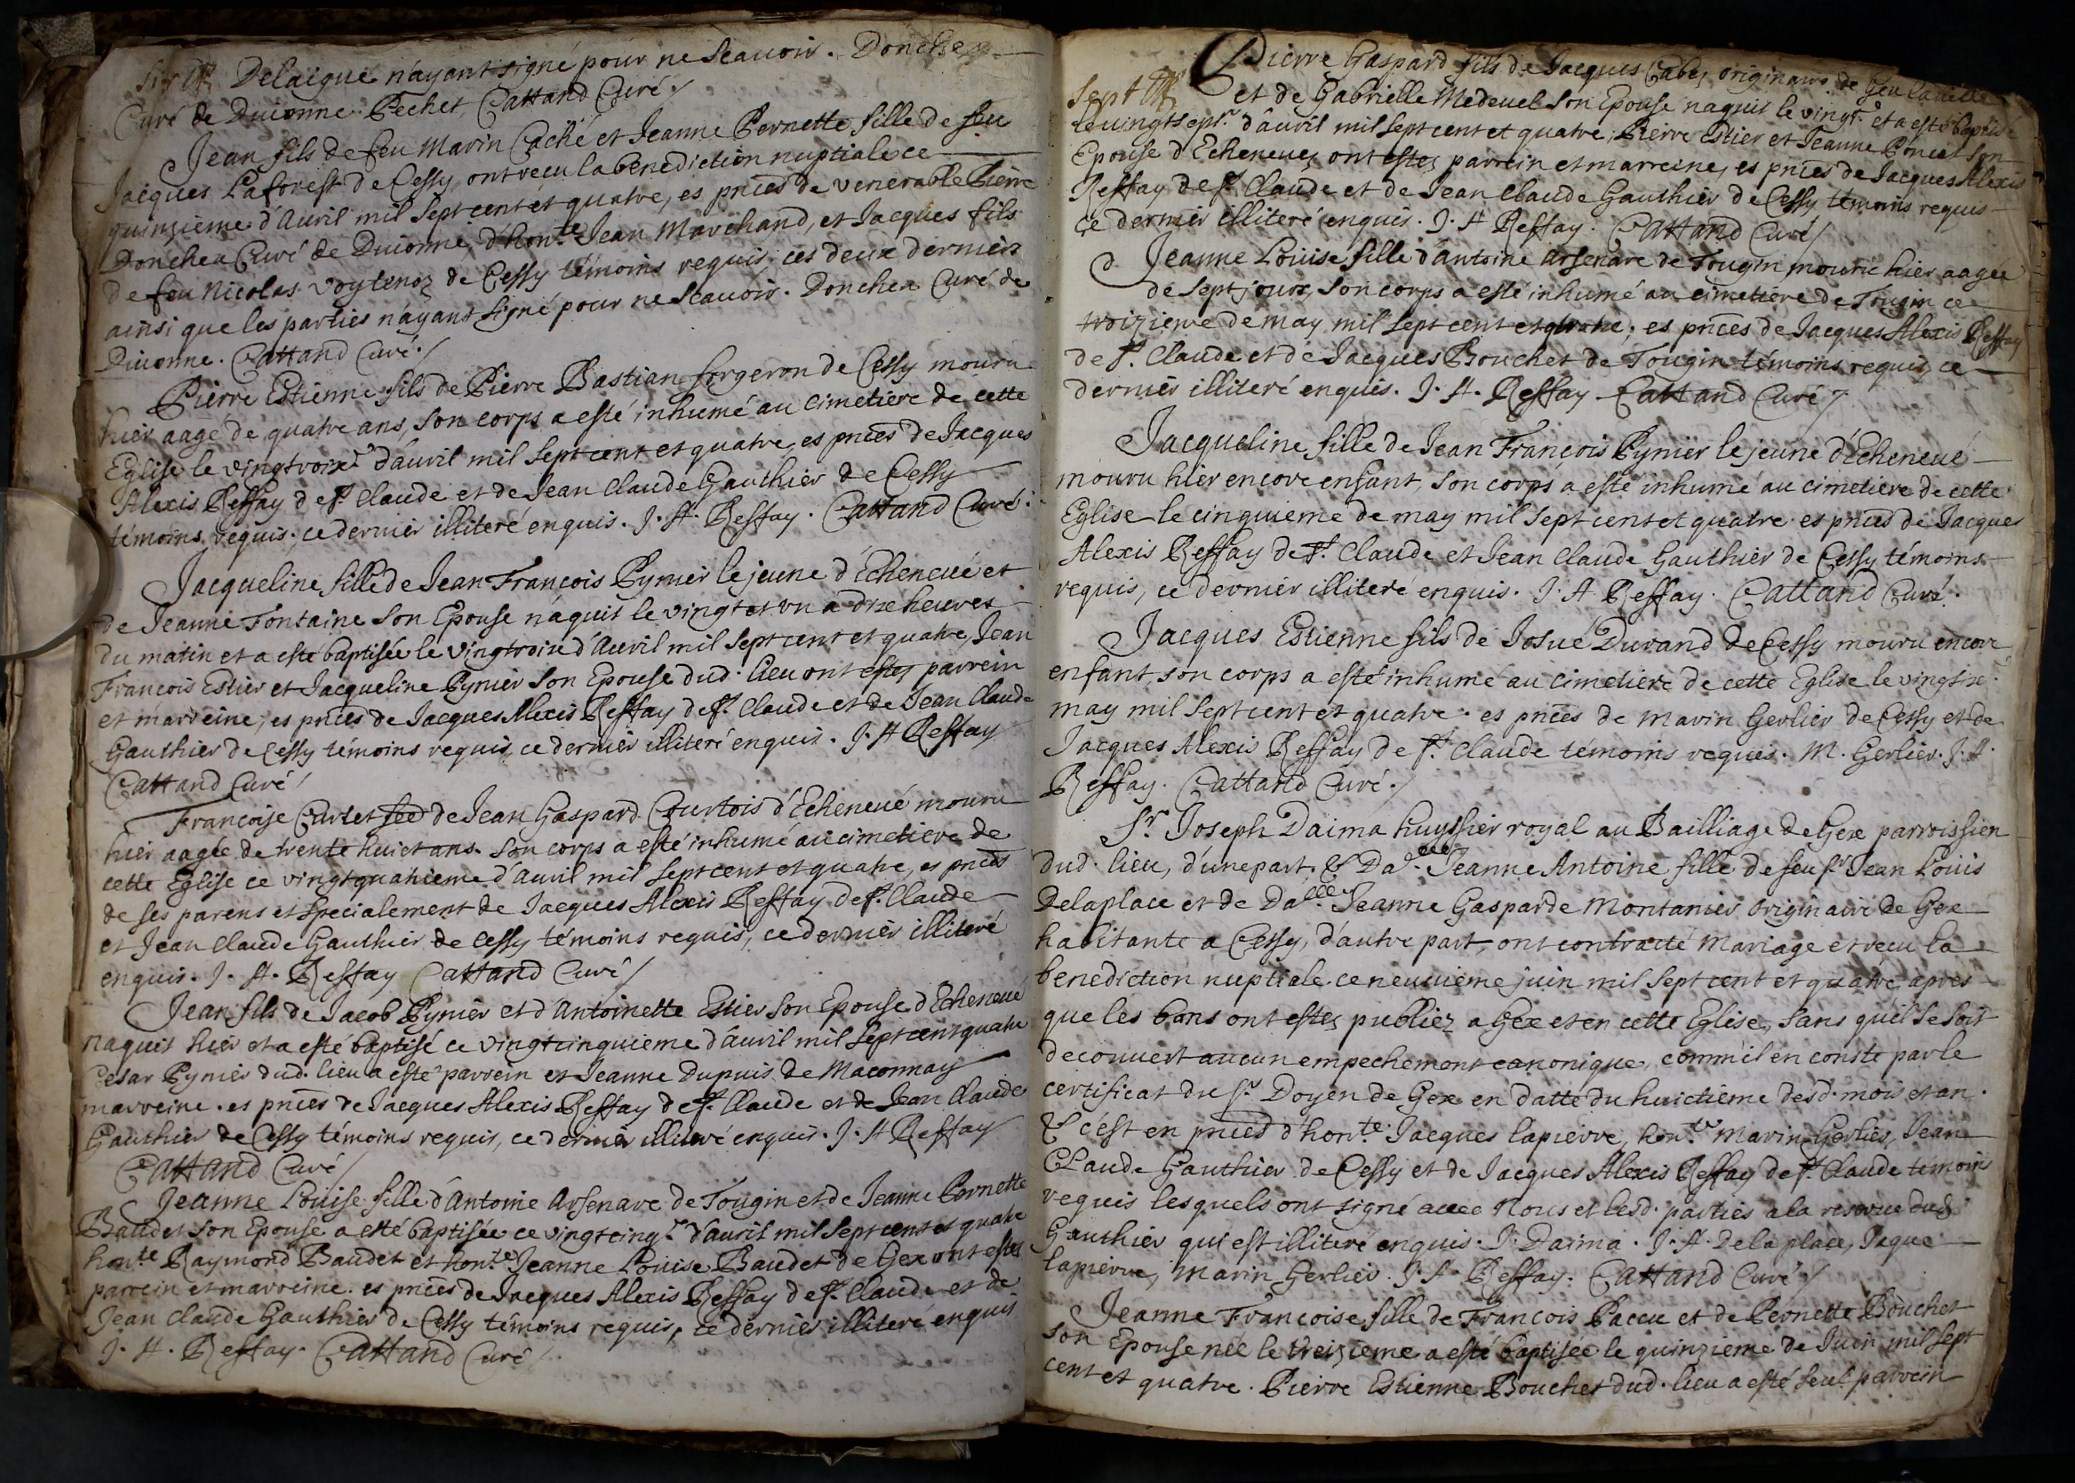 Delaigue n'ayant signé pour ne Scauoir. Donchea
Curé de Diuonne. Pechet, Cattand Curé /
Jean fils de feu Marin Caché et Jeanne Pernette fille de feu
Jacques Laforest de Cessy, ont receu la benediction nuptiale ce
quinzieme d'Auril mil sept cent et quatre, es pnces de venerable Pierre
Donchea Curé de Diuonne, d'honte Jean Marchand, et Jacques fils
de feu Nicolas Voytenoz de Cessy témoins requis, ces deux derniers
ainsi que les parties n'ayant signé pour ne Scauoir. Donchea Curé de
Diuonne. Cattand Curé. /
Pierre Estienne fils de Pierre Bastian forgeron de Cessy mouru
hier aagé de quatre ans, son corps a esté inhumé au cimetiere de cette
Eglise le vingtroixe d'auril mil sept cent et quatre, es pnces de Jacques
Alexis Reffay de St. Claude et de Jean Claude Gauthier de Cessy
témoins requis, ce dernier illiteré enquis. J. A. Reffay. Cattand Curé.
Jacqueline fille de Jean François Pynier le jeune d'Echeneué et
de Jeanne Fontaine son Epouse naquit le vingt et vn a dix heures
du matin et a esté baptisée le vingtroixe d'Auril mil sept cent et quatre, Jean
François Estier et Jacqueline Pynier son Epouse dud. lieu ont estez parrein
et marreine, es pnces de Jacques Alexis Reffay de St. Claude et de Jean Claude
Gauthier de Cessy témoins requis, ce dernier illiteré enquis. J. A Reffay
Cattand Curé /
Françoise Carlet fed de Jean Gaspard Courtois d'Echeneué mouru
hier aagée de trente huict ans. Son corps a esté inhumé au cimetiere de
cette Eglise ce vingtquatrieme d'Auril mil sept cent et quatre, es pnces
de ses parens et specialement de Jacques Alexis Reffay de St. Claude
et Jean Claude Gauthier de Cessy témoins requis, ce dernier illiteré
enquis. J. A. Reffay Cattand Curé /
Jean fils de Jacob Pynier et d'Antoinette Estier son Epouse d'Echeneué
naquit hier et a esté baptisé ce vingtcinquieme d'auril mil sept cent quatre
Cesar Pynier dud. lieu a esté parrein et Jeanne Dupuis de Maconnay
marreine. es pnces de Jacques Alexis Reffay de St. Claude et de Jean Claude
Gauthier de Cessy témoins requis, ce dernier illiteré enquis. J. A Reffay
Cattand Curé /
Jeanne Louise fille d'Antoine Arsenare de Tougin et de Jeanne Pernette
Baudet son Epouse a esté baptisée ce vingtcinqe d'auril mil sept cent et quatre
honte Raymond Baudet et honte Jeanne Louise Baudet de Gex ont estez
parrein et marreine. es pnces de Jacques Alexis Reffay de St. Claude et de
Jean Claude Gauthier de Cessy témoins requis, ce dernier illiteré enquis
J. A. Reffay. Cattand Curé /
Sept
Pierre Gaspard fils de Jacques originaire de
et de Gabrielle Medeuel son Epouse naquit le vingt et a esté baptisé
le vingtsepte d'auril mil sept cent et quatre, Pierre Estier et Jeanne Poncet son
Epouse d'Echeneuez ont estez parrein et marreine, es pnces de Jacques Alexis
Reffay de St. Claude et de Jean Claude Gauthier de Cessy témoins requis
ce dernier illiteré enquis. J. A Reffay. Cattand Curé /
Jeanne Louise fille d'Antoine Arsenare de Tougin mouru hier aagée
de sept jours, son corps a esté inhumé au cimetiere de Tougin ce
troizieme de may mil sept cent et quatre, es pnces de Jacques Alexis Reffay
de St. Claude et de Jacques Bouchet de Tougin témoins requis, ce
dernier illiteré enquis. J. A. Reffay. Cattand Curé /
Jacqueline fille de Jean François Pynier le jeune d'Echeneué
mouru hier encore enfant, son corps a esté inhumé au cimetiere de cette
Eglise le cinquieme de may mil sept cent et quatre es pnces de Jacques
Alexis Reffay de St. Claude et Jean Claude Gauthier de Cessy témoins
requis, ce dernier illiteré enquis. J. A Reffay. Cattand Curé.
Jacques Estienne fils de Josué Durand de Cessy mouru encore
enfant son corps a esté inhumé au cimetiere de cette Eglise le vingtsixe
may mil sept cent et quatre. es pnces de Marin Gerlier de Cessy et de
Jacques Alexis Reffay de St. Claude témoins requis. M. Gerlier. J. A.
Reffay. Cattand Curé. /
Sr. Joseph Daima huyssier royal au Bailliage de Gex parroissien
dud. lieu, d'une part, & Dalle. Jeanne Antoine fille de feu Sr Jean Louis
Delaplace et de Dalle Jeanne Gasparde Montanier originaire de Gex
habitante a Cessy, d'autre part, ont contracté mariage et receu la
benediction nuptiale ce neuuieme juin mil sept cent et quatre apres
que les bans ont estez publiez a Gex et en cette Eglise, sans qu'il se soit
decouuert aucun empechement canonique, comm'il en conste par le
certificat du Sr. Doyen de Gex en datte du huictieme desd. mois et an.
& c'est en pnces d'honte. Jacques lapierre, honte Marin Gerlier, Jean
Claude Gauthier de Cessy et de Jacques Alexis Reffay de St. Claude temoins
requis lesquels ont signé auec Nous et lesd. parties a la reserue dud.
Gauthier qui est illiteré enquis. J. Daima. J. A. Delaplace, Jaque
lapierre, Marin Gerlier. J. A Reffay. Cattand Curé /
Jeanne Françoise fille de François Paccu et de Pernette Bouchet
son Epouse née le treizieme a esté baptisée le quinzieme de Juin mil sept
cent et quatre. Pierre Estienne Bouchet dud. lieu a esté seul parrein